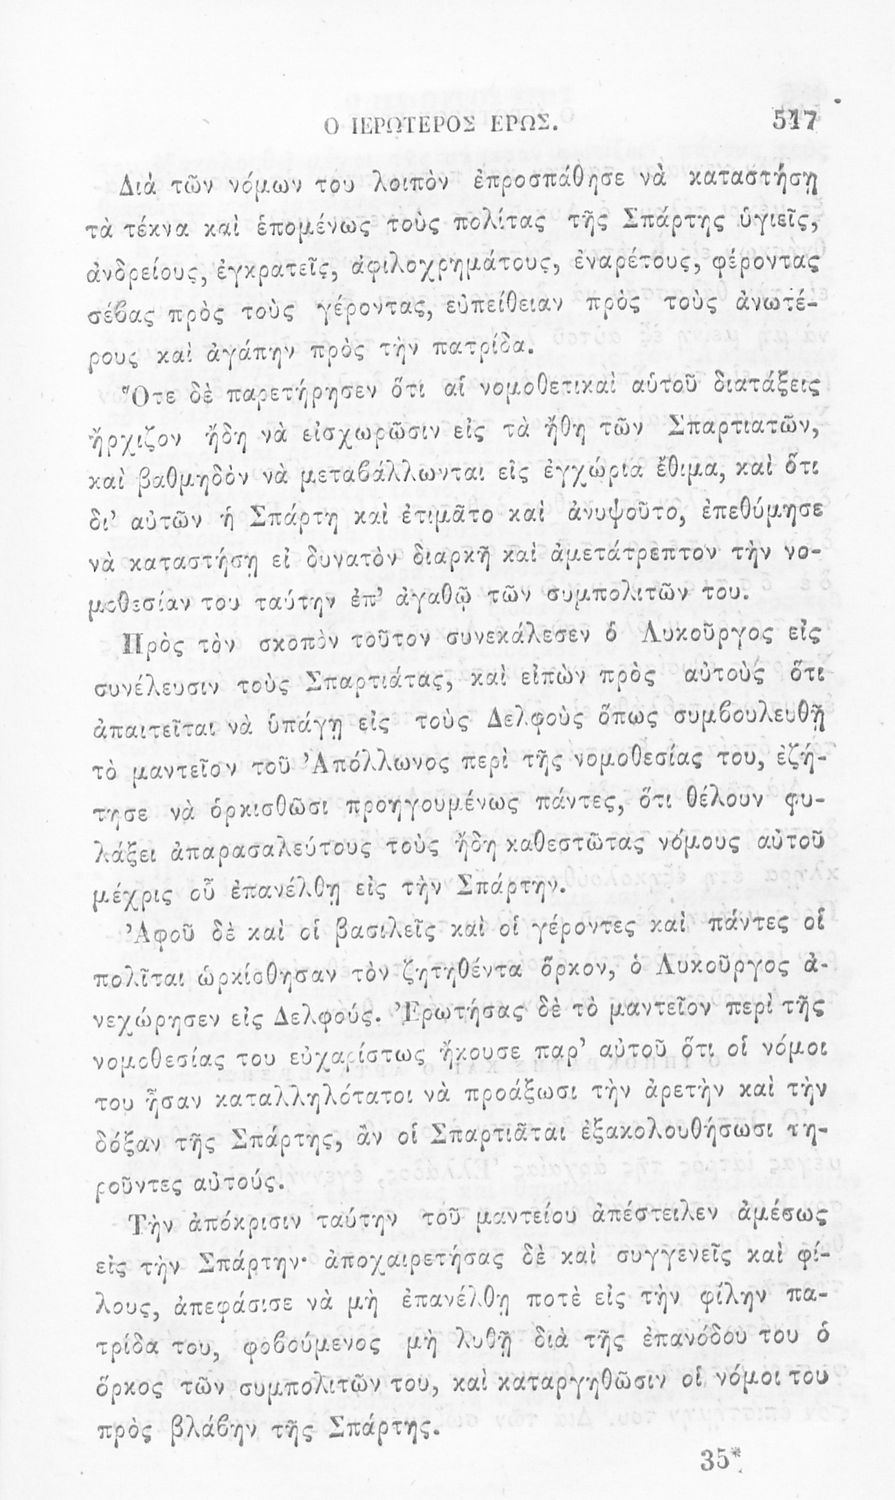 Ο ΙΕΡΩΤΕΡΟΣ ΕΡΩΣ. 517
Διὰ τῶν νόμων του λοιπὸν ἐπροσπάθησε νὰ καταστήσῃ
τὰ τέκνα καὶ ἑπομένως τοὺς πολίτας τῆς Σπάρτης ὑγιεῖς,
ἀνδρείους, ἐγκρατεῖς, ἀφιλοχρημάτους, ἐναρέτους, φέροντας
σέβας πρὸς τοὺς γέροντας, εὐπείθειαν πρὸς τοὺς ἀνωτέ-
ρους καὶ ἀγάπην πρὸς τὴν πατρίδα.
Ὅτε δὲ παρετήρησεν ὅτι αἱ νομοθετικαὶ αὑτοῦ διατάξεις
ἤρχιζον ἤδη νὰ εἰσχωρῶσιν εἰς τὰ ἤθη τῶν Σπαρτιατῶν,
καὶ βαθμηδὸν νὰ μεταβάλλωνται εἰς ἐγχώρια ἔθιμα, καὶ ὅτι
δι’ αὐτῶν ἡ Σπάρτη καὶ ἐτιμᾶτο καὶ ἀνυψοῦτο, ἐπεθύμησε
νὰ καταστήσῃ εἰ δυνατὸν διαρκῆ καὶ ἀμετάτρεπτον τὴν νο-
μοθεσίαν του ταύτην ἐπ’ ἀγαθῷ τῶν συμπολιτῶν του.
Πρὸς τὸν σκοπὸν τοῦτον συνεκάλεσεν ὁ Λυκοῦργος εἰς
συνέλευσιν τοὺς Σπαρτιάτας, καὶ εἰπὼν πρὸς αὐτοὺς ὅτι
ἀπαιτεῖται νὰ ὑπάγῃ εἰς τοὺς Δελφοὺς ὅπως συμβουλευθῇ
τὸ μαντεῖον τοῦ Ἀπόλλωνος περὶ τῆς νομοθεσίας του, ἐζή-
τησε νὰ ὁρκισθῶσι προηγουμένως πάντες, ὅτι θέλουν φυ-
λάξει ἀπαρασαλεύτους τοὺς ἤδη καθεστῶτας νόμους αὐτοῦ
μέχρις οὗ ἐπανέλθῃ εἰς τὴν Σπάρτην.
Ἀφοῦ δὲ καὶ οἱ βασιλεῖς καὶ οἱ γέροντες καὶ πάντες οἱ
πολῖται ὡρκίσθησαν τὸν ζητηθέντα ὅρκον, ὁ Λυκοῦργος ἀ-
νεχώρησεν εἰς Δελφούς. Ἐρωτήσας δὲ τὸ μαντεῖον περὶ τῆς
νομοθεσίας του εὐχαρίστως ἤκουσε παρ’ αὐτοῦ ὅτι οἱ νόμοι
του ἦσαν καταλληλότατοι νὰ προάξωσι τὴν ἀρετὴν καὶ τὴν
δόξαν τῆς Σπάρτης, ἂν οἱ Σπαρτιᾶται ἐξακολουθήσωσι τη-
ροῦντες αὐτούς.
Τὴν ἀπόκρισιν ταύτην τοῦ μαντείου ἀπέστειλεν ἀμέσως
εἰς τὴν Σπάρτην· ἀποχαιρετήσας δὲ καὶ συγγενεῖς καὶ φί-
λους, ἀπεφάσισε νὰ μὴ ἐπανέλθῃ ποτὲ εἰς τὴν φίλην πα-
τρίδα του, φοβούμενος μὴ λυθῇ διὰ τῆς ἐπανόδου του ὁ
ὅρκος τῶν συμπολιτῶν του, καὶ καταργηθῶσιν οἱ νόμοι του
πρὸς βλάβην τῆς Σπάρτης.
35*